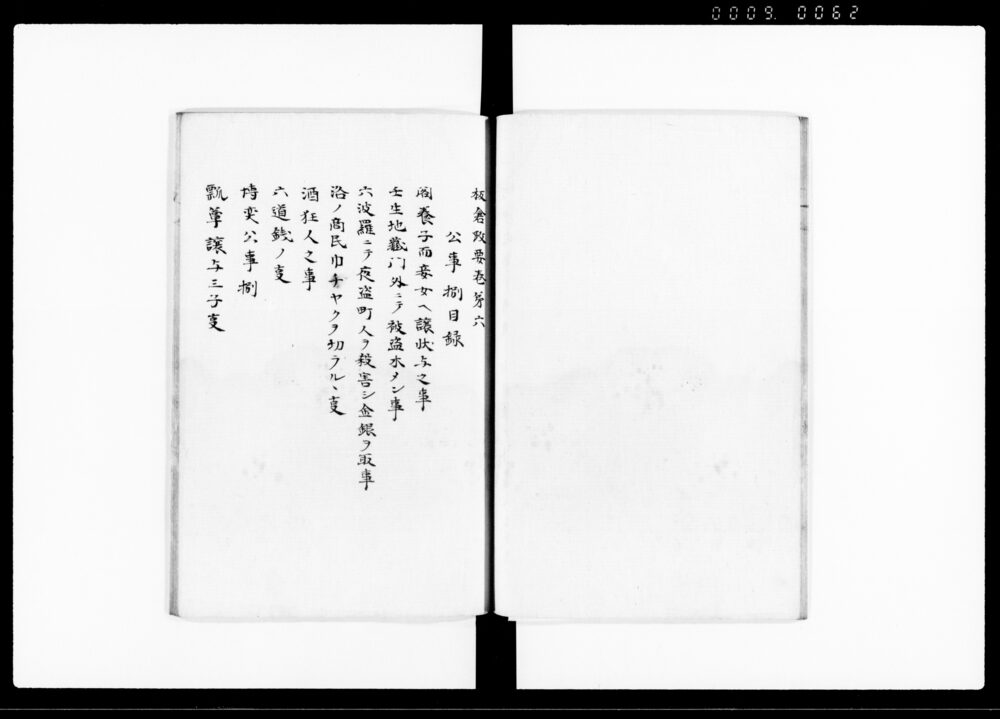 0009. 0062
板倉政要巻第六
公事捌目録
閣養子而妾女ヘ譲状与之事
壬生地蔵門外ニテ被盗木メン事
六波羅ニテ夜盗町人ヲ殺害シ金銀ヲ取事
洛ノ商民巾チヤクヲ切ラルヽ㕝
酒狂人之事
六道銭ノ㕝
博奕公事捌
瓢箪譲与三子㕝